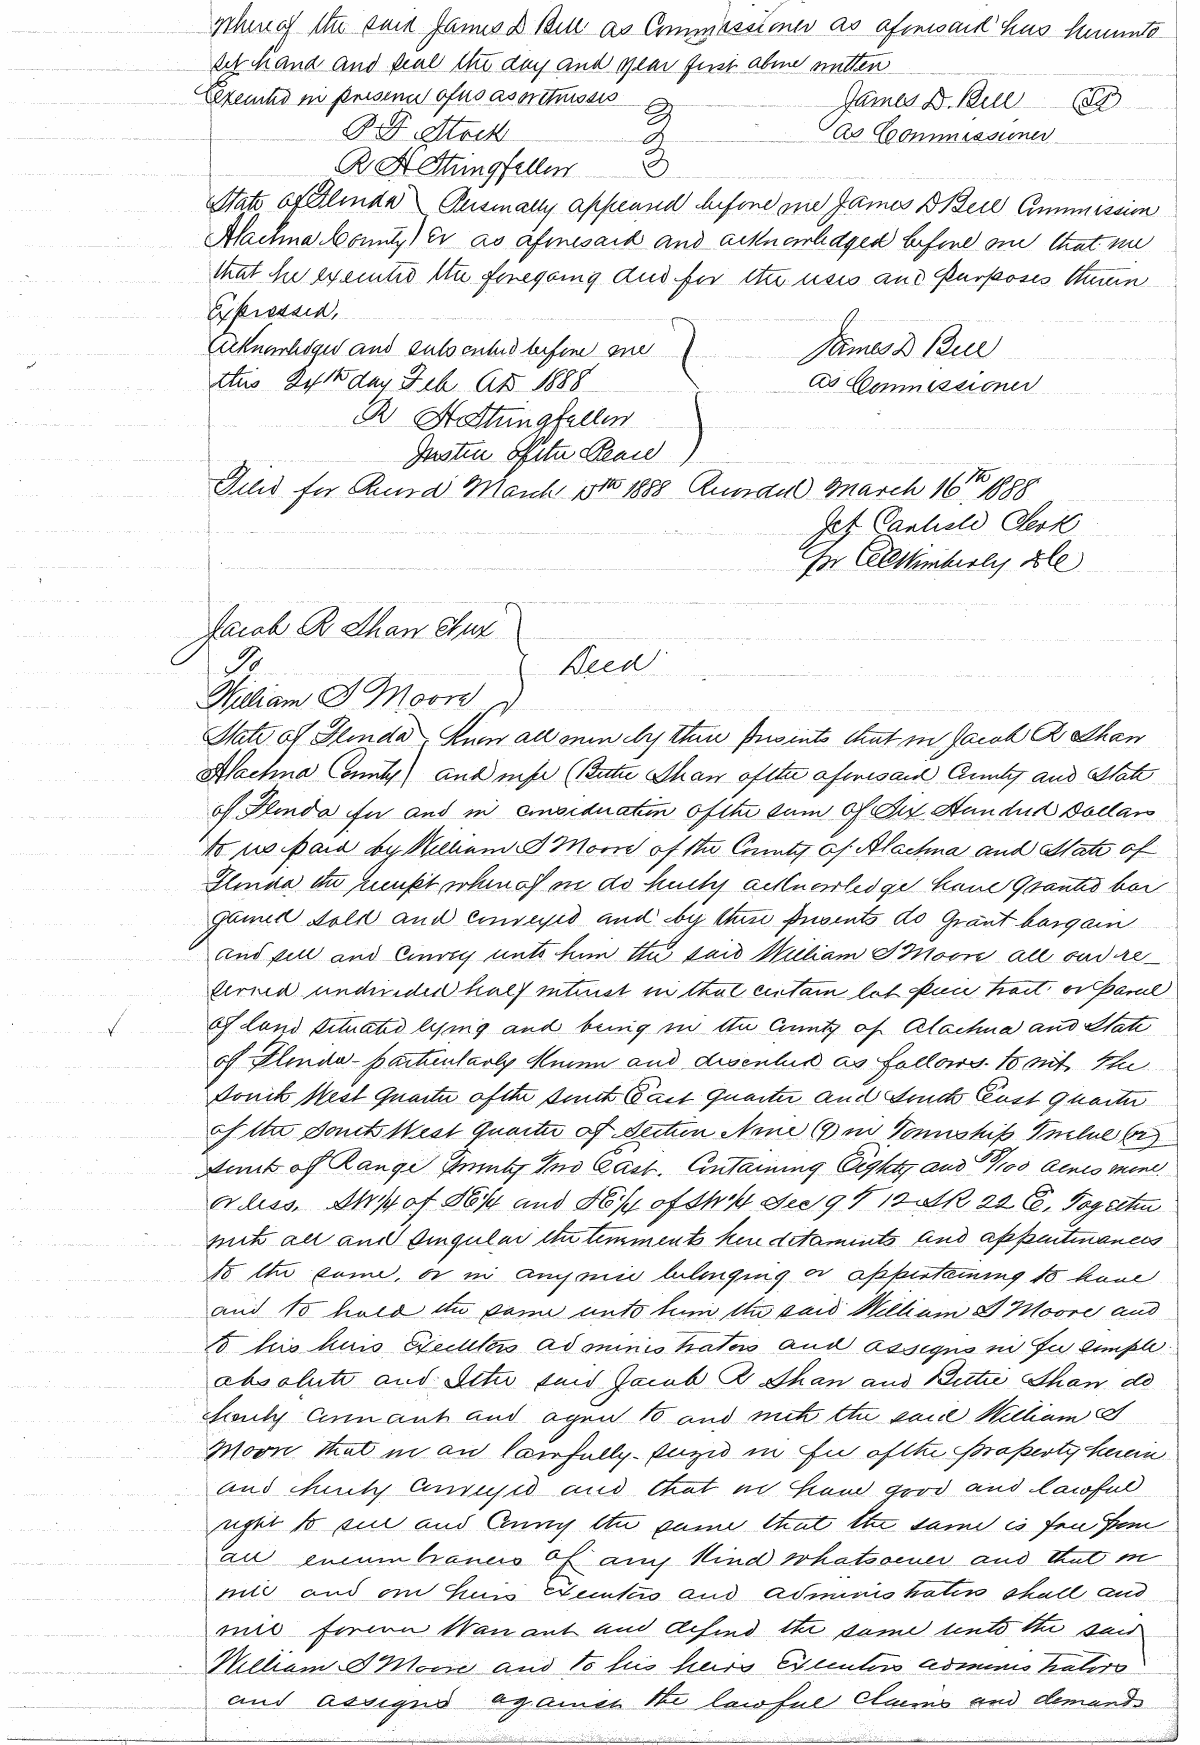 whereof the said James D Bell as Commissioner as aforesaid has hereunto
set hand and seal the day and year first above written
Executed in presence of us as witnesses James D. Bell
P F Stock as Commissioner
R H Stringfellow
State of Florida Personally appeared before me James D Bell Commission
Alachua County er as aforesaid and acknowledged before me that me
that he executed the foregoing deed for the uses and purposes therein
Expressed,
Acknowledged and subscribed before me James D Bell
this 24th day Feb AD 1888 as Commissioner
R H Stringfellow
Justice of the Peace
Filed for Record March 15th 1888 Recorded March 16th 1888
Carlisle Clerk
pr Wimberly DC
Jacob R Shaw & ux
To Deed
William S Moore
State of Florida Know all men by these presents that we Jacob R Shaw
Alachua County and wife Bettie Shaw of the aforesaid County and State
of Florida for and in consideration of the sum of Six Hundred Dollars
to us paid by William S Moore of the County of Alachua and State of
Florida the receipt whereof we do hereby acknowledge have Granted bar
gained sold and conveyed and by these presents do Grant bargain
and sell and convey unto him the said William S Moore all our re-
served undivided half interest in that certain lot piece tract or parcel
of land situated lying and being in the County of Alachua and State
of Florida - particularly known and described as follows. to wit, The
South West Quarter of the South East Quarter and South East Quarter
of the South West Quarter of Section Nine (9) in Township Twelve (12)
South of Range Twenty Two East. Containing Eighty and /100 acres more
or less. SW¼ of SE¼ and SE¼ of SW¼ Sec 9 T 12 S R 22 E. Together
with all and singular the tenements hereditaments and appertinances
to the same, or in anywise belonging or appertaining to have
and to hold the same unto him the said William S Moore and
to his heirs Executors administrators and assigns in fee simple
absolute and the said Jacob R Shaw and Bettie Shaw do
hereby Covenant and agree to and with the said William S
Moore that we are lawfully seized in fee of the property herein
and hereby conveyed and that we have good and lawful
right to sell and Convey the same that the same is free from
all encumbrances of any kind whatsoever and that we
will and our heirs Executors and administrators shall and
will forever Warrant and defend the same unto the said
William S Moore and to his heirs Executors administrators
and assigns against the lawful Claims and demands